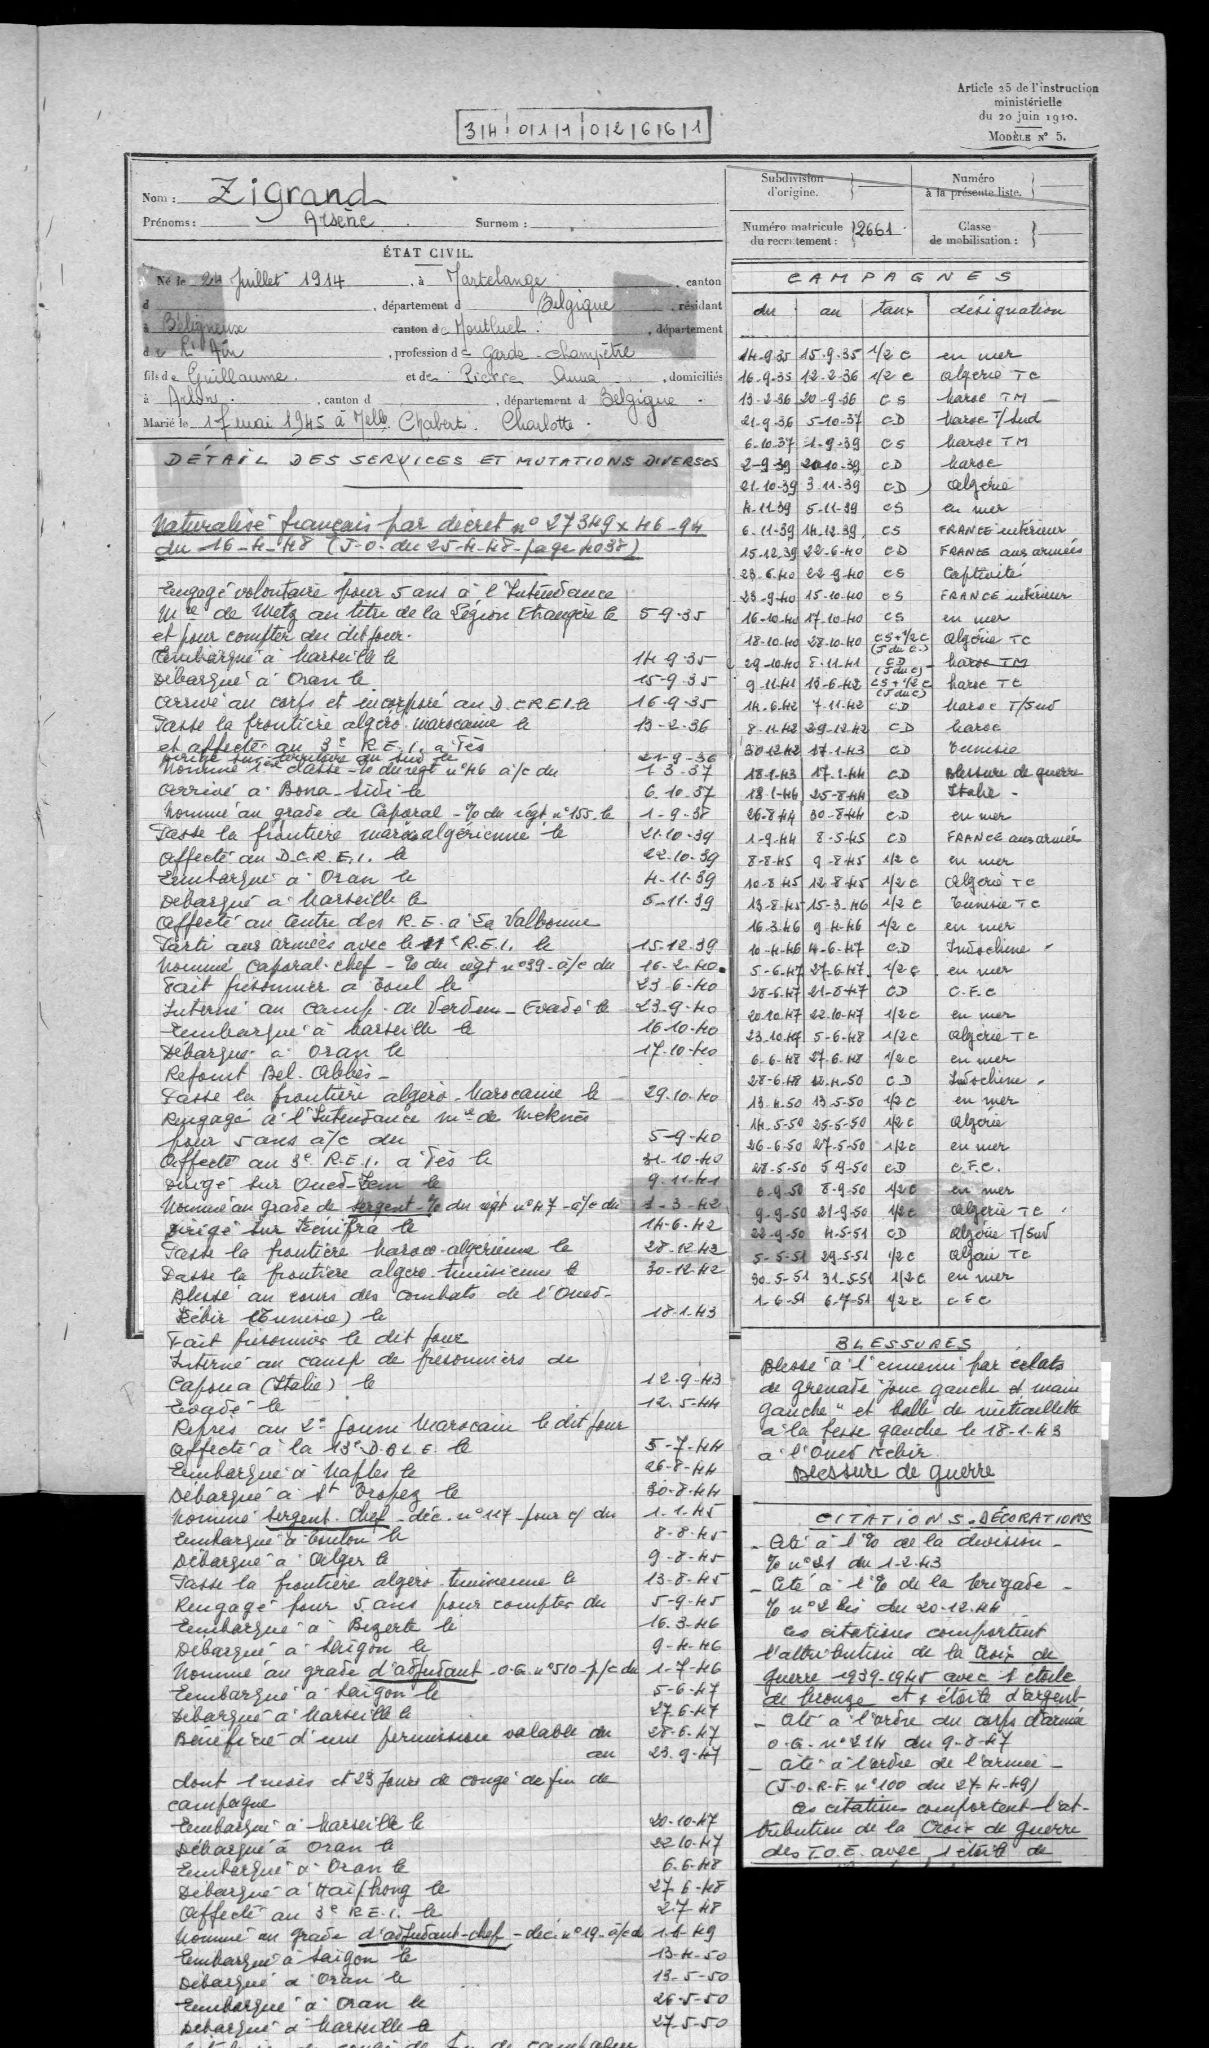 Article 25 de l'instruction
ministérielle
du 20 juin 1910.
MODÈLE N° 5.
3|4|0|1|1|0|2|6|6|1
Nom : Zigrand
Prénoms : Arsène Surnom :
ÉTAT CIVIL.
Né le 24 Juillet 1914, à Martelange, canton
d , département d Belgique, résidant
à Béligneux canton de Montluel, département
de L'Ain, profession de Garde-champêtre
fils de Guillaume et de Pierre Anna, domiciliés
à Arlon, canton d , département d Belgique.
Marié le 17 mai 1945 à Melle Chabert Charlotte.
Subdivision
d'origine.
Numéro
à la présente liste.
Numéro matricule
du recrutement : 2661
Classe
de mobilisation :
DÉTAIL DES SERVICES ET MUTATIONS DIVERSES
Naturalisé français par décret n° 27349 x 46-94
du 16-4-48 (J-O. du 25-4-48 - page 4038)
Engagé volontaire pour 5 ans à l'Intendance
Mre de Metz au titre de la Légion Etrangère le 5-9-35
et pour compter du dit jour.
Embarqué à Marseille le 14-9-35
Débarqué à Oran le 15-9-35
Arrivé au corps et incorporé au D.C.R.E.I. le 16-9-35
Passe la frontière algéro-marocaine le 13-2-36
et affecté au 3e R.E.I. à Fès
Dirigé sur territoire du sud le 21-9-36
Nommé 1ère classe - % du régt n°46 à/c du 1-3-37
Arrivé à Bona-Sidi le 6.10.37
Nommé au grade de Caporal - % du régt n°155 le 1-9-38
Passe la frontière maroco algérienne le 21-10-39
Affecté au D.C.R.E.I. le 22-10-39
Embarqué à Oran le 4-11-39
Débarqué à Marseille le 5-11-39
Affecté au Centre des R.E. à La Valbonne
Parti aux armées avec le 11e R.E.I. le 15-12-39
Nommé Caporal-chef - % du régt n°39 - à/c du 16-2-40
Fait prisonnier à Toul le 23-6-40
Interné au camp de Verdun - Evadé le 23-9-40
Embarqué à Marseille le 16-10-40
Débarqué à Oran le 17-10-40
Rejoint Bel-Abbès -
Passe la frontière algéro-Marocaine le 29-10-40
Rengagé à l'Intendance Mre de Meknès
pour 5 ans à/c du 5-9-40
Affecté au 3e R.E.I. à Fès le 31-10-40
Dirigé sur Oued-Zem le 9-11-41
Nommé au grade de sergent - % du régt n°47 - à/c du 1-3-42
Dirigé sur Kénifra le 14-6-42
Passe la frontière maroco-algérienne le 28-12-42
Passe la frontière algéro-tunisienne le 30-12-42
Blessé au cours des combats de l'Oued-
Kébir (Tunisie) le 18-1-43
Fait prisonnier le dit jour
Interné au camp de prisonniers de
Capoua (Italie) le 12-9-43
Evadé le 12-5-44
Repris au 2e Goum Marocain le dit jour
Affecté à la 13e D.B.L.E. le 5-7-44
Embarqué à Naples le 26-8-44
Débarqué à St Tropez le 30-8-44
Nommé Sergent-Chef - déc. n°117 - pour c/ du 1-1-45
Embarqué à Toulon le 8-8-45
Débarqué à Alger le 9-8-45
Passe la frontière algéro-tunisienne le 13-8-45
Rengagé pour 5 ans pour compter du 5-9-45
Embarqué à Bizerte le 16-3-46
Débarqué à Saïgon le 9-4-46
Nommé au grade d'adjudant - O.G. n°510 - p/c du 1-7-46
Embarqué à Saigon le 5-6-47
Débarqué à Marseille le 27-6-47
Bénéficié d'une permission valable du 28-6-47
au 23-9-47
dont 1 mois et 23 jours de congé de fin de
campagne
Embarqué à Marseille le 20-10-47
Débarqué à Oran le 22-10-47
Embarqué à Oran le 6-6-48
Débarqué à Haïphong le 27-6-48
Affecté au 3e R.E.I. le 2-7-48
Nommé au grade d'adjudant-chef - déc. n°19 - à/c d 1-1-49
Embarqué à Saigon le 13-4-50
Débarqué à Oran le 13-5-50
Embarqué à Oran le 26-5-50
Débarqué à Marseille le 27-5-50
CAMPAGNES
du au taux désignation
14-9-35 15-9-35 1/2 C en mer
16-9-35 12-2-36 1/2 C Algérie TC
13-2-36 20-9-36 CS Maroc TM
21-9-36 5-10-37 CD Maroc T/Sud
6-10-37 1-9-39 CS Maroc TM
2-9-39 20-10-39 CD Maroc
21-10-39 3-11-39 CD Algérie
4-11-39 5-11-39 CS en mer
6-11-39 14-12-39 CS FRANCE intérieur
15-12-39 22-6-40 CD FRANCE aux armées
23-6-40 22-9-40 CS Captivité
23-9-40 15-10-40 CS FRANCE intérieur
16-10-40 17-10-40 CS en mer
18-10-40 28-10-40 CS+1/2C (J du C.) Algérie TC
29-10-40 8-11-41 CD (J du C) Maroc TM
9-11-41 13-6-42 CS+1/2C (J du C) Maroc TC
14-6-42 7-11-42 CD Maroc T/Sud
8-11-42 29-12-42 CD Maroc
30-12-42 17-1-43 CD Tunisie
18-1-43 17-1-44 CD Blessure de guerre
18-1-46 25-8-44 CD Italie
26-8-44 30-8-44 CD en mer
1-9-44 8-5-45 CD FRANCE aux armées
8-8-45 9-8-45 1/2 C en mer
10-8-45 12-8-45 1/2 C Algérie TC
13-8-45 15-3-46 1/2 C Tunisie TC
16-3-46 9-4-46 1/2 C en mer
10-4-46 4-6-47 CD Indochine
5-6-47 27-6-47 1/2 C en mer
28-6-47 21-8-47 CD C.F.C
20-10-47 22-10-47 1/2 C en mer
23-10-47 5-6-48 1/2 C Algérie TC
6-6-48 27-6-48 1/2 C en mer
28-6-48 12-4-50 CD Indochine
13-4-50 13-5-50 1/2 C en mer
14-5-50 25-5-50 1/2 C Algérie
26-6-50 27-5-50 1/2 C en mer
28-5-50 5-9-50 CD C.F.C.
6-9-50 8-9-50 1/2 C en mer
9-9-50 21-9-50 1/2 C Algérie TC
22-9-50 4-5-51 CD Algérie T/Sud
5-5-51 29-5-51 1/2 C Algérie TC
30-5-51 31-5-51 1/2 C en mer
1-6-51 6-7-51 1/2 C C F C
BLESSURES
Blessé à l'ennemi par éclats
de grenade "joue gauche et main
gauche" et balle de mitraillette
à la fesse gauche le 18-1-43
à l'Oued Kébir.
Blessure de guerre
CITATIONS-DÉCORATIONS
- Cité à l'% de la division -
% n°21 du 1-2-43
- Cité à l'% de la brigade -
% n°2 bis du 20-12-44
Ces citations comportent
l'attribution de la Croix de
guerre 1939-1945 avec 1 étoile
de bronze et 1 étoile d'argent
- Cité à l'ordre du corps d'armée
O.G. n°214 du 9-8-47
- Cité à l'ordre de l'armée -
(J.O.R.F. n°100 du 27-4-49)
Ces citations comportent l'at-
tribution de la Croix de guerre
des T.O.E. avec 1 étoile de